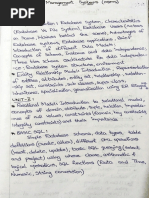 Management Systems (DBMS)
Introduction: Database system, characteristics
(Database vs File System), Database Users (Actors
on scene, Workers behind the scene), Advantages of
Database systems, Database applications. Brief
introduction of different Data Models;
Concepts of Schema, Instance and data independence;
Three tier schema architecture for data independence;
Database system
Entity Relationship Model: Introduction, Representation
of entities, attributes, entity set, relationship, relationship
set, constraints, sub classes, super class,
inheritance, specialization, generalization using ER
Diagrams.
UNIT-2
Relational Model: Introduction to relational model,
concepts of domain, attribute, tuple, relation, importance
of null values, constraints (Domain, Key
constraints, integrity constraints) and their importance
BASIC SQL
Simple Database schema, data types, table
definitions (create, alter), different DML operations
(insert, delete, update), basic SQL querying (select
and project) using where clause, arithmetic &
logical operations, SQL functions (Date and Time,
Numeric, String conversion)